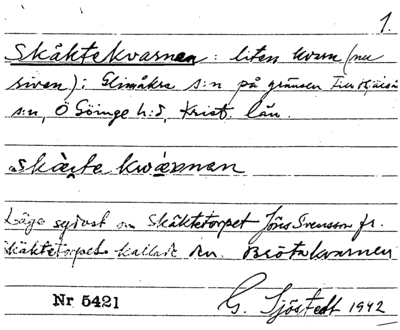 1.
Skäktekvarnen: liten kvarn (nu
riven) i Glimåkra s:n på gränsen till Hjärsås
s:n, Ö Göinge h:d, Krist. län.
skäcte kwarnen
Läge sydost om Skäktetorpet Jöns Svensson fr.
Skäktetorpet kallade den Brötakvarnen
Nr 5421
G. Sjöstedt 1942